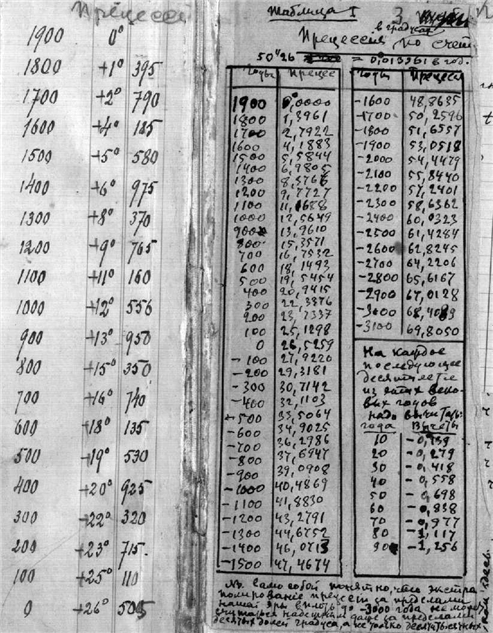 Прецессия
1900 0°
1800 +1° 395
1700 +2° 790
1600 +4° 185
1500 +5° 580
1400 +6° 975
1300 +8° 370
1200 +9° 765
1100 +11° 160
1000 +12° 556
900 +13° 950
800 +15° 350
700 +16° 740
600 +18° 135
500 +19° 530
400 +20° 925
300 +22° 320
200 +23° 715
100 +25° 110
0 +26° 505
Таблица I
3
в градусах
Прецессия по счёту
50"26 = 0,013961 в год.
Годы Прецесс
1900 0,0000
1800 1,3961
1700 2,7922
1600 4,1883
1500 5,5844
1400 6,9805
1300 8,3766
1200 9,7727
1100 11,1688
1000 12,5649
900 13,9610
800 15,3571
700 16,7532
600 18,1493
500 19,5454
400 20,9415
300 22,3376
200 23,7337
100 25,1298
0 26,5259
-100 27,9220
-200 29,3181
-300 30,7142
-400 32,1103
-500 33,5064
-600 34,9025
-700 36,2986
-800 37,6947
-900 39,0908
-1000 40,4869
-1100 41,8830
-1200 43,2791
-1300 44,6752
-1400 46,0713
-1500 47,4674
Годы Прецесси
-1600 48,8635
-1700 50,2596
-1800 51,6557
-1900 53,0518
-2000 54,4479
-2100 55,8440
-2200 57,2401
-2300 58,6362
-2400 60,0323
-2500 61,4284
-2600 62,8245
-2700 64,2206
-2800 65,6167
-2900 67,0128
-3000 68,4089
-3100 69,8050
На каждое
последующее
десятилетие
из этих веко-
вых годов
надо вычитать:
года Вычеты
10 -0,139
20 -0,279
30 -0,418
40 -0,558
50 -0,698
60 -0,838
70 -0,977
80 -1,117
90 -1,256
само собой понятно, что экстра-
полирование прецессии за пределами
нашей эры вплоть до -3000 года не может
считаться надёжным даже за пределами
десятых долей градуса, а не только десятитысячных